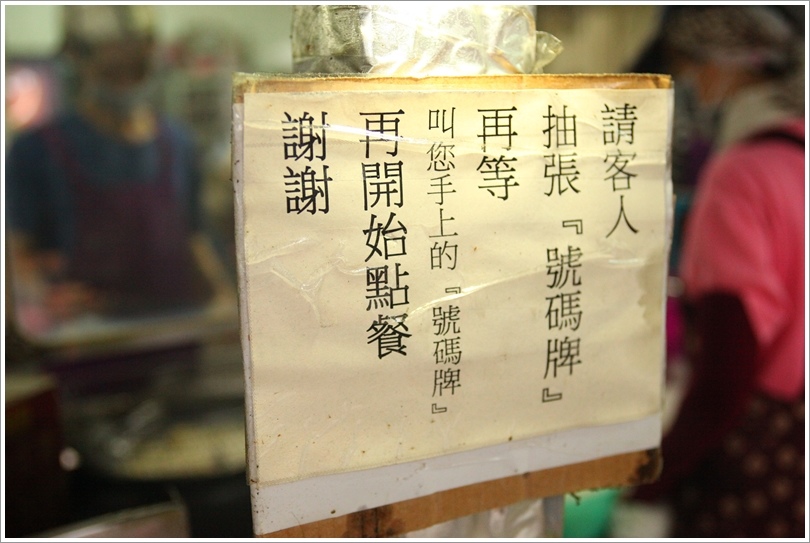 請客人
抽張『號碼牌』
再等
叫您手上的『號碼牌』
再開始點餐
謝謝